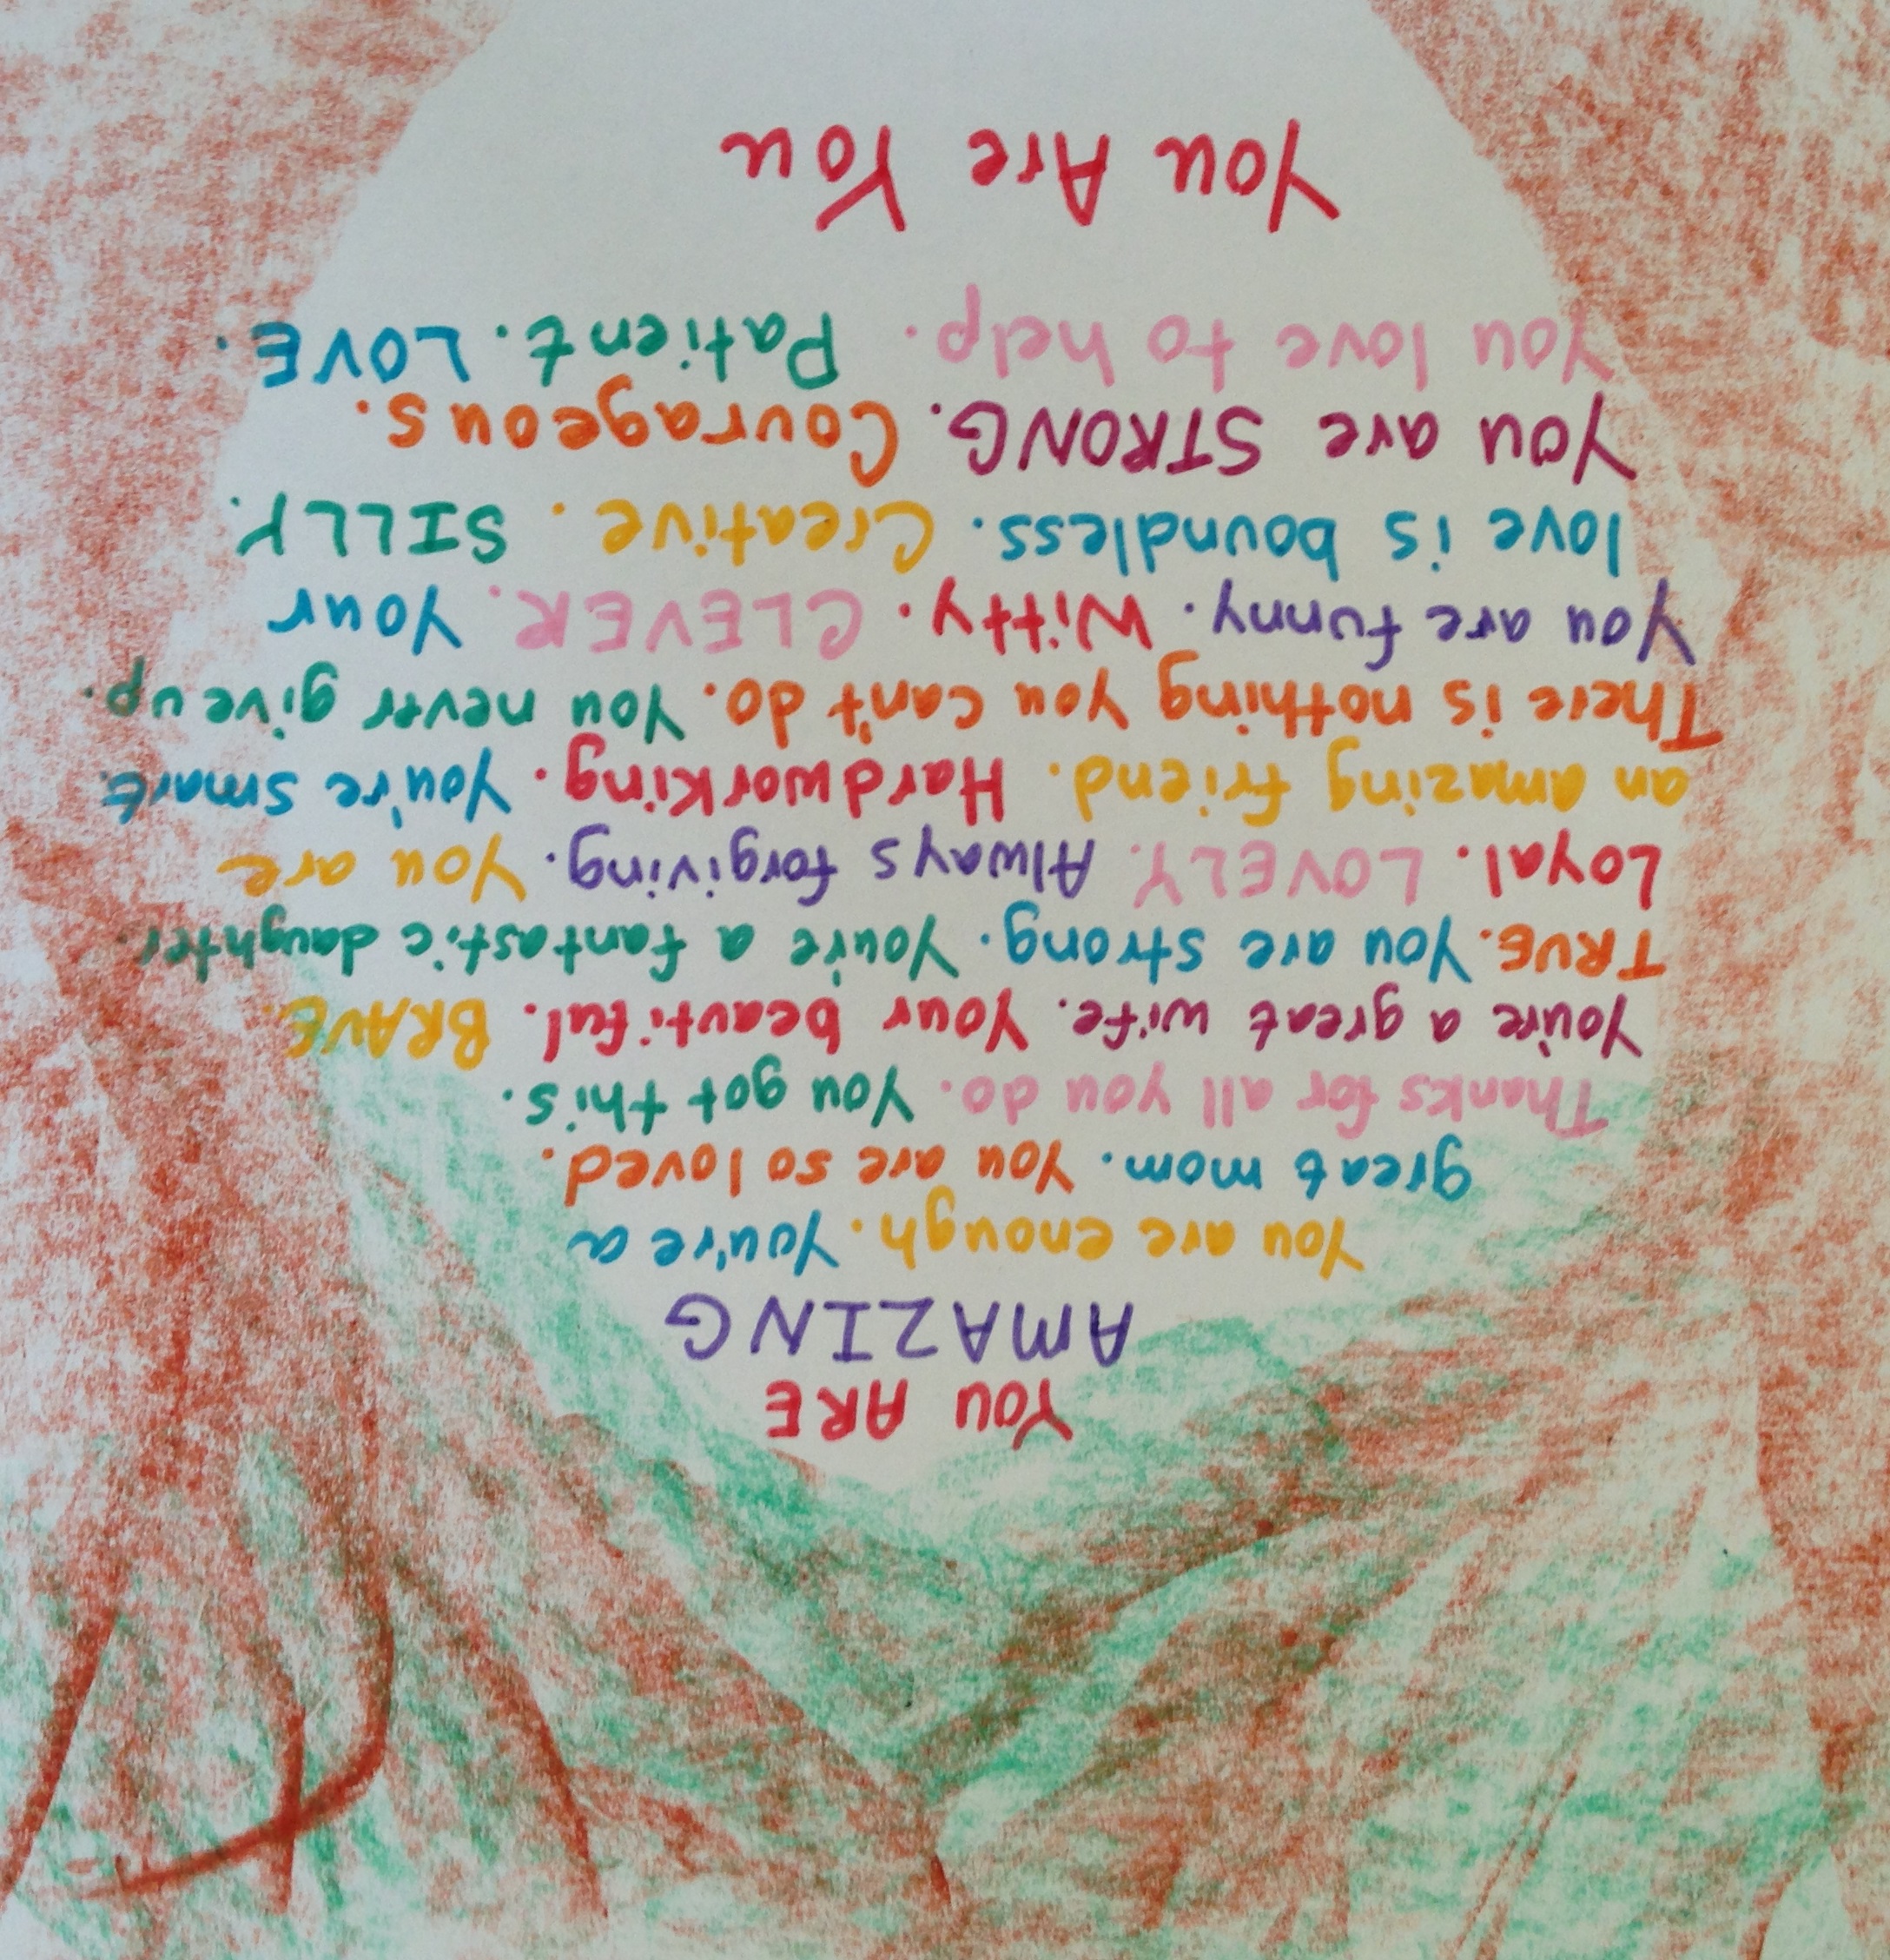 YOU ARE
AMAZING
You are enough. You're a
great mom. You are so loved.
Thanks for all you do. You got this.
You're a great wife. Your beautiful. BRAVE.
TRUE. You are strong. You're a fantastic daughter.
Loyal. LOVELY. Always forgiving. You are
an amazing friend. Hardworking. You're smart.
There is nothing you can't do. You never give up.
You are funny. Witty. CLEVER. Your
love is boundless. Creative. SILLY.
You are STRONG. Courageous.
You love to help. Patient. LOVE.
You Are You